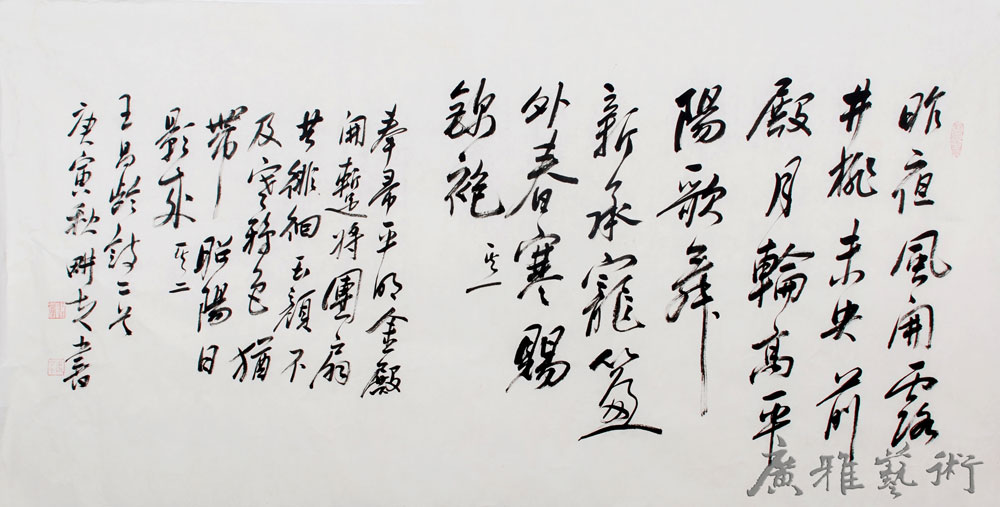 昨夜風開露
井桃未央前
殿月輪高平
陽歌舞
新承寵簾
外春寒賜
錦袍 其一
奉帚平明金殿
開暫將團扇
共徘徊玉顏不
及寒鴉色猶
帶昭陽日
影來 其二
王昌齡詩二首
庚寅秋畊書
廣雅藝術